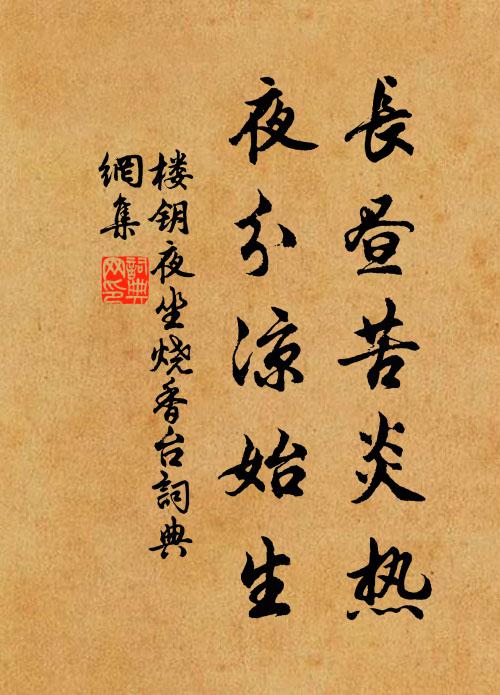 長昼苦炎热
夜分凉始生
楼钥夜坐烧香台詞典
網集
詞典
网印